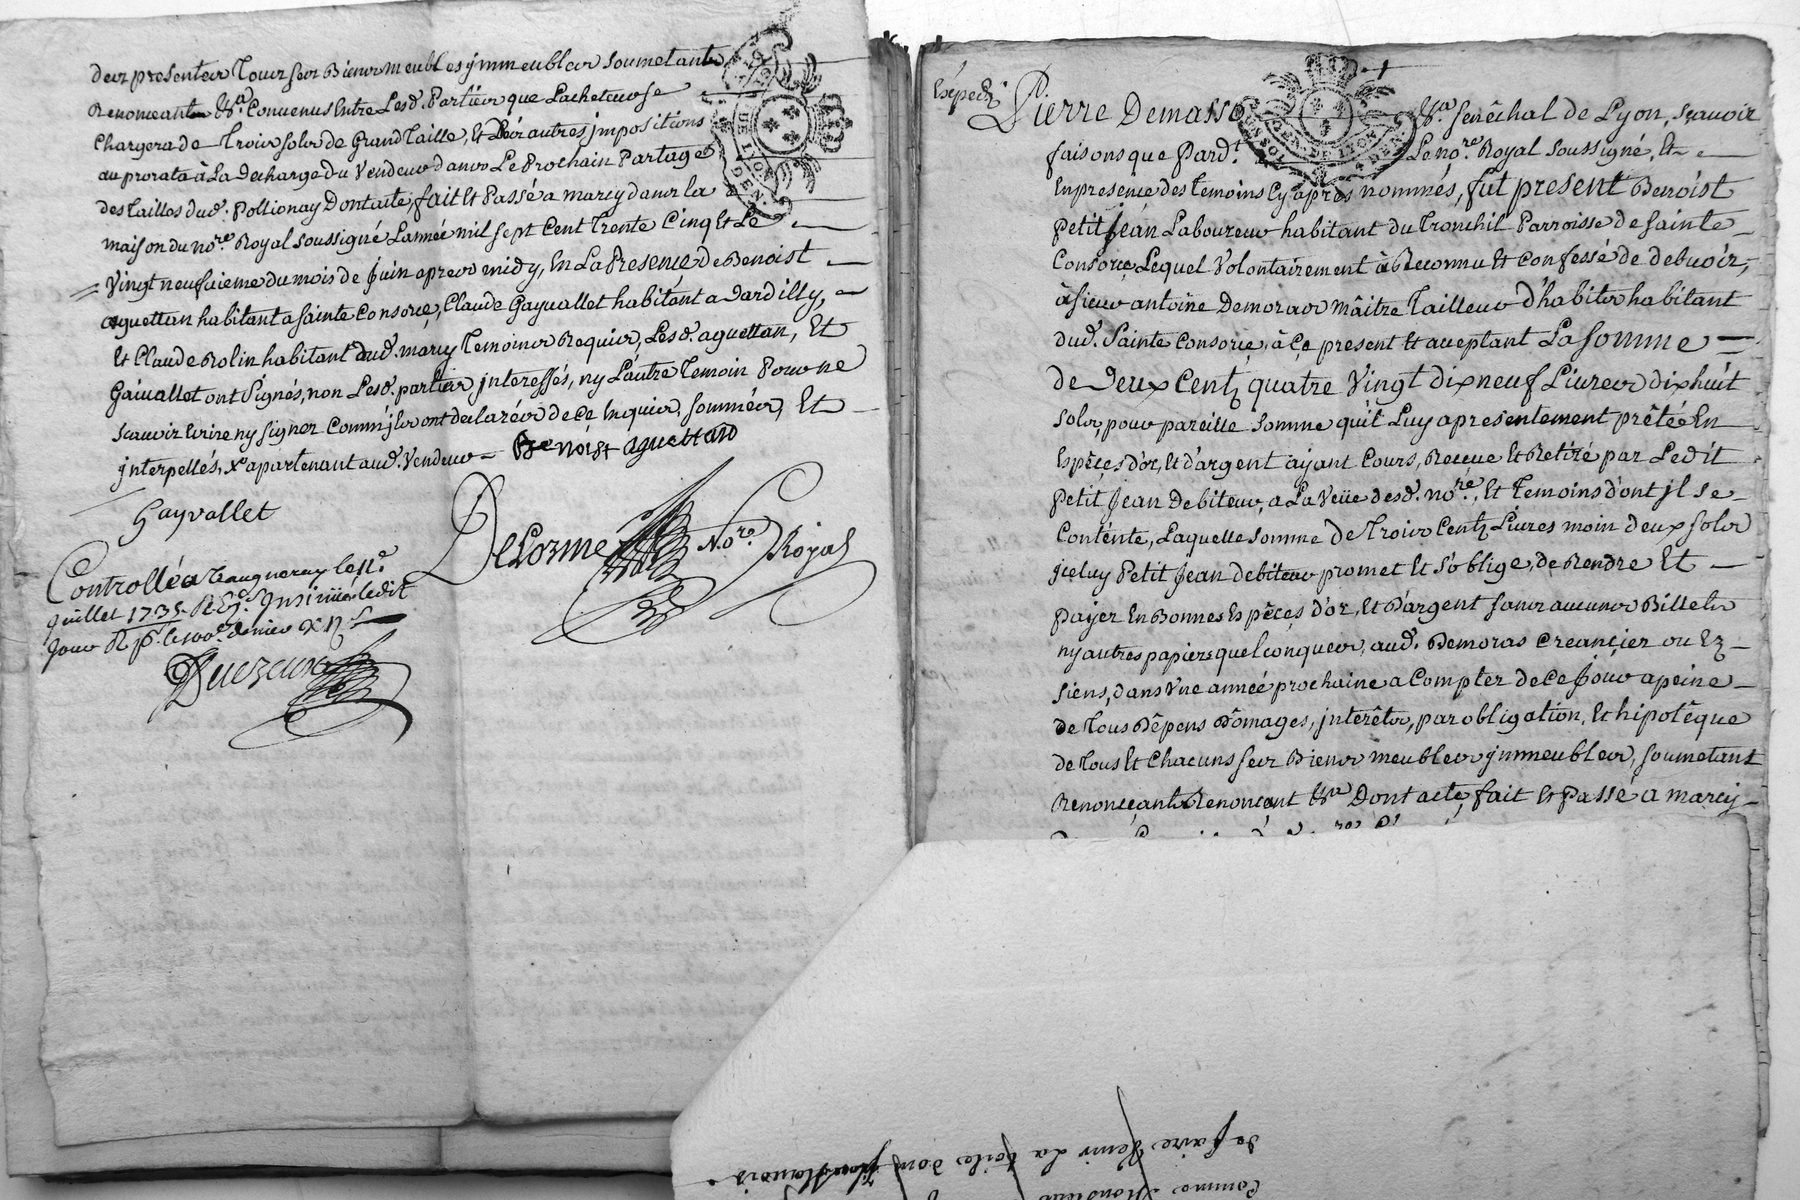 des presenter Tour ses Bienor meubles ymmeubler soumetant
Renonceant &ra Convenus Entre Lesd. Partier que Lacheteur se
Chargera de Troir solor de Grand Taille, Et Des autres jmpositions
au prorata à La decharge du Vendeur danor Le Prochain Partage
des Tailles dud. Pollionay Dont acte, fait Et Passé a marcy danr la
maison du nore. Royal soussigné Lanneé mil sept Cent Trente Cinq Et Le
Vingt neufuieme du mois de Juin apreor midy, En La Presence de Benoist
aguettan habitant a sainte Consorce, Claude Gayvallet habitant a dardilly,
Et Claude Rolin habitant dud. marcy Temoinor Requior, Lesd. aguettan, Et
Gaivallet ont signés, non Lesd. partier jnteressés, ny L'autre Temoin Pour ne
scavoir Ecrire ny signer Comm'jlor ont declaréor de ce Enquior, somméor, Et
jnterpellés, apartenant aud. Vendeur
Benoist aguettan
Gayvallet
Delorme No.re Royal
Controllé a Vaugneray le 11e
juillet 1735.
jour
Expedié
Pierre Demasso &ra. Senêchal de Lyon, scavoir
faisons que Pard.t Le nore. Royal soussigné, Et
En presence des Temoins Cy après nommés, fut present Benoist
Petit Jean Laboureur habitant du Tronchil Parroisse de sainte
Consorce, Lequel Volontairement à Reconnu Et Confessé de debvoir,
à sieur antoine Demoraor Mâitre Tailleur d'habitor habitant
dud. Sainte Consorce, à Ce present Et aceptant La somme
de Deux Cent quatre Vingt dixneuf Livreor dixhuit
solor, pour pareille somme qu'il Luy a presentement prêtée En
Espêces d'or, Et d'argent ayant Cours, Receue Et Retiré par Ledit
Petit Jean Debiteur, a La Veüe desd. nore. Et Temoins d'ont jl se
Contente, Laquelle somme de Troior Cent Livres moin deux solor
jceluy Petit Jean debiteur promet Et s'oblige, de Rendre Et
Payer En Bonnes Espêces d'or, Et d'argent sanor aucunor Billetor
ny autres papiers quelconqueor, aud. Demoras Creancier ou Ez
siens, dans Vne année prochaine a Compter de Ce Jour a peine
de Tous Dêpens Dômages, jnterêtor, par obligation, Et hipotêque
de Tous Et Chacuns ses Bienor meubleor jmmeubleor, soumetant
Renonçant Renonçant &ra Dont acte, fait Et Passé a marcy
Comme Monsieur
de faire Venir La toile dont